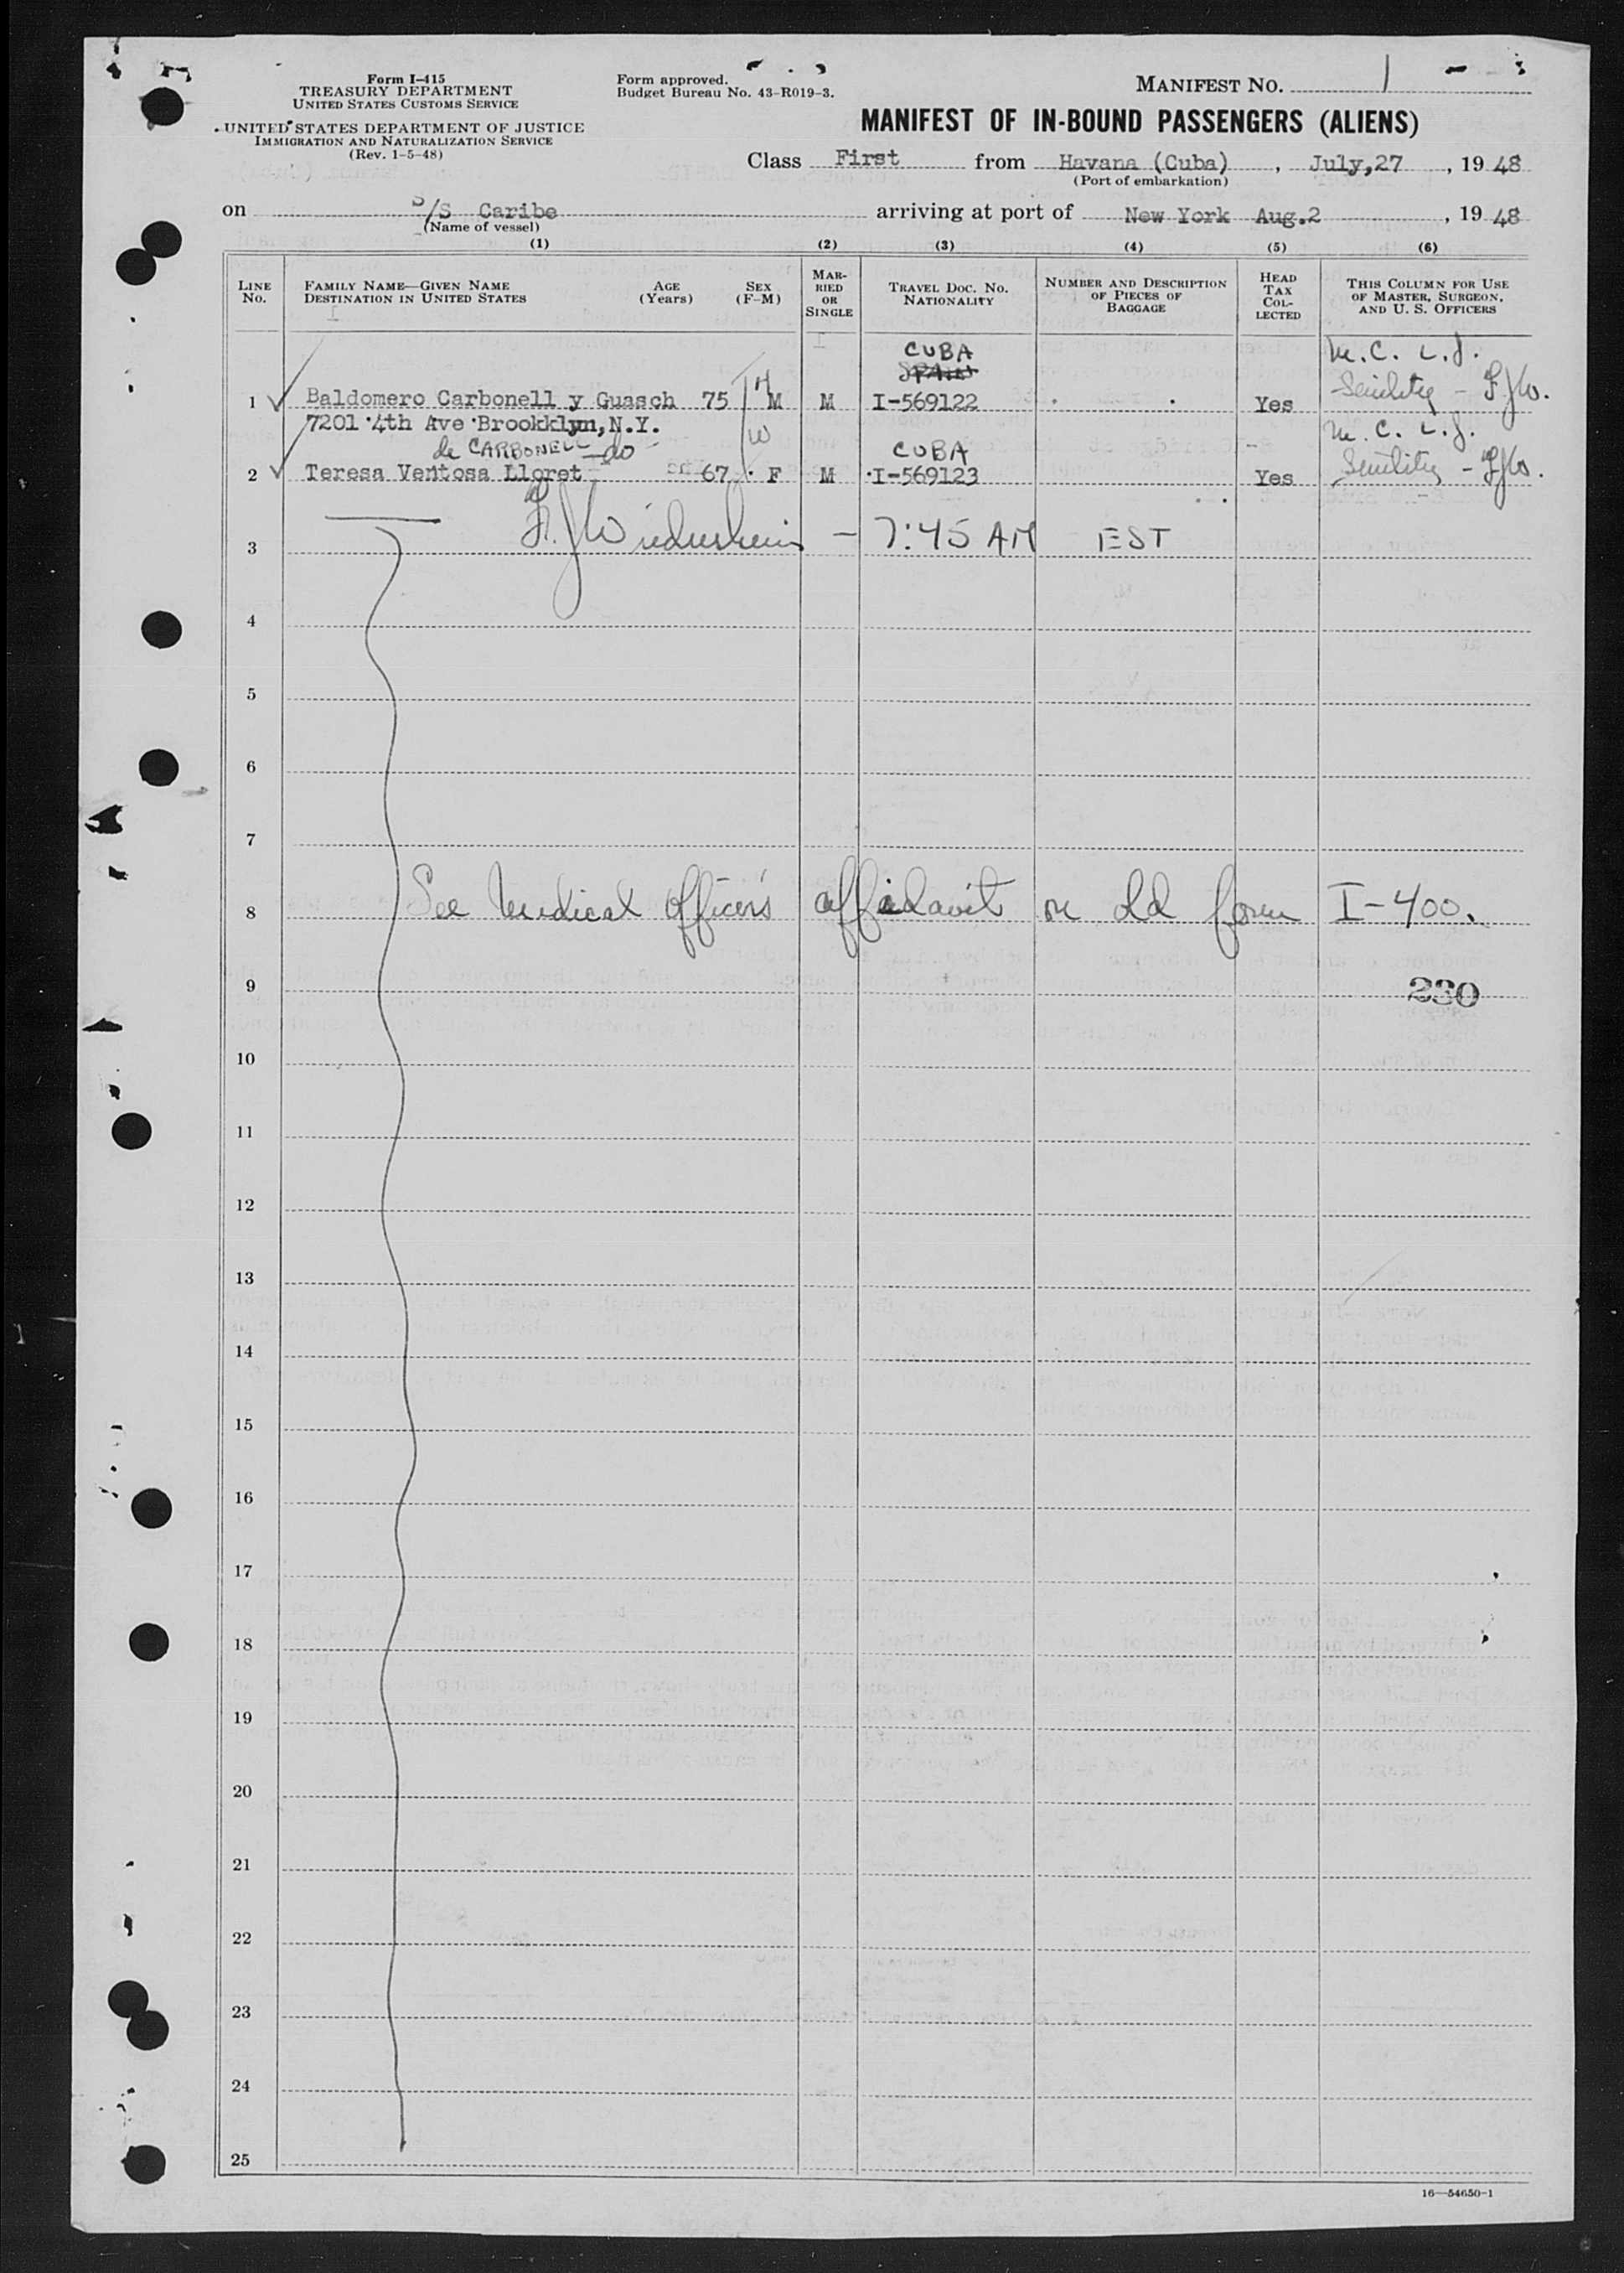 Form I-415
TREASURY DEPARTMENT
UNITED STATES CUSTOMS SERVICE
UNITED STATES DEPARTMENT OF JUSTICE
IMMIGRATION AND NATURALIZATION SERVICE
(Rev. 1-5-48)
Form approved.
Budget Bureau No. 43-R019-3.
MANIFEST NO. 1
MANIFEST OF IN-BOUND PASSENGERS (ALIENS)
Class First from Havana (Cuba), July,27, 1948
(Port of embarkation)
on S/S Caribe arriving at port of New York Aug.2, 1948
(Name of vessel)
(1) (2) (3) (4) (5) (6)
LINE No.
FAMILY NAME—GIVEN NAME
DESTINATION IN UNITED STATES
AGE (Years)
SEX (F-M)
MARRIED OR SINGLE
TRAVEL DOC. NO. NATIONALITY
NUMBER AND DESCRIPTION OF PIECES OF BAGGAGE
HEAD TAX COLLECTED
THIS COLUMN FOR USE OF MASTER, SURGEON, AND U. S. OFFICERS
CUBA
SPAIN
M.C. L.J.
1 Baldomero Carbonell y Guasch 75 H M M I-569122 Yes Senility - FJW.
7201 4th Ave Brookklyn, N.Y. W M.C. L.J.
de CARBONELL -do- CUBA
2 Teresa Ventosa Lloret 67 F M I-569123 Yes Senility - FJW.
3 - 7:45 AM EST
4
5
6
7
8 See Medical Officers affidavit on old form I-400.
9 230
10
11
12
13
14
15
16
17
18
19
20
21
22
23
24
25
16—54650-1